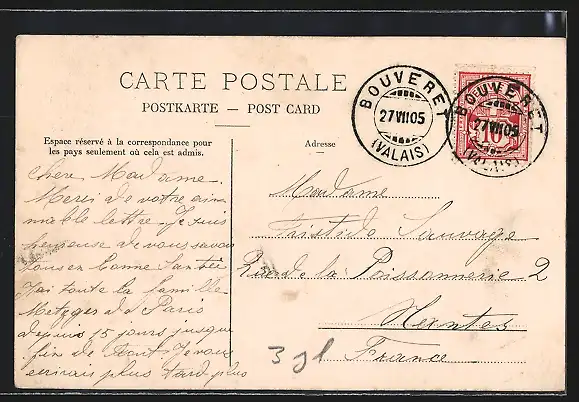 CARTE POSTALE
POSTKARTE — POST CARD
Espace réservé à la correspondance pour
les pays seulement où cela est admis.
Adresse
BOUVERET
27 VII 05
(VALAIS)
BOUVERET
27 VII 05
(VALAIS)
Chère Madame.
Merci de votre aim
mable lettre. Je suis
heureuse de vous savoir
tous en bonne Santée
J'ai toute la famille
Metzger de Paris
depuis 15 jours jusque
fin de Août. Je vous
écrirais plus tard plus
Madame
Aristide Sauvage
Rue de la Poissonnerie 2
Nantes
France